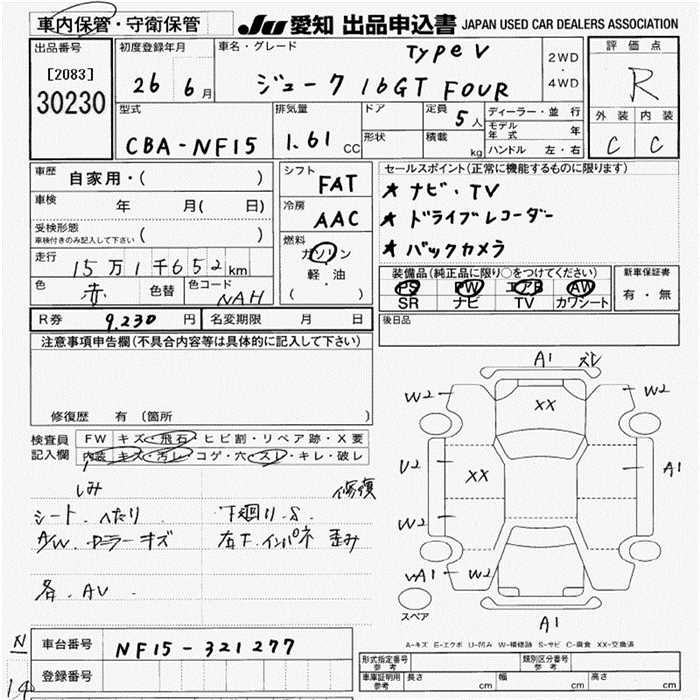 車内保管・守衛保管
JU 愛知 出品申込書 JAPAN USED CAR DEALERS ASSOCIATION
出品番号
[2083]
30230
初度登録年月
26 6月
車名・グレード
Type V
ジューク 16GT FOUR
2WD
・
4WD
評価点
R
外装 内装
C C
型式
CBA-NF15
排気量
1.61 CC
ドア
形状
定員 5人
積載 kg
ディーラー・並行
モデル年式 年
ハンドル 左・右
車歴 自家用・( )
車検 年 月( 日)
受検形態
車検付きのみ記入して下さい ( )
走行 15万1千652km
色 赤 色替 色コード NAH
シフト FAT
冷房 AAC
燃料
ガソリン
軽・油
( )
セールスポイント(正常に機能するものに限ります)
★ ナビ・TV
★ ドライブレコーダー
★ バックカメラ
装備品(純正品に限り○をつけてください)
PS PW エアB AW
SR ナビ TV カワシート
新車保証書
有・無
R券 9,230円 名変期限 月 日
後日品
注意事項申告欄(不具合内容等は具体的に記入して下さい)
修復歴 有(箇所 )
検査員記入欄
FW キズ・飛石・ヒビ割・リペア跡・X要
内装 キズ・汚レ・コゲ・穴・スレ・キレ・破レ
しみ 修復
シート・へたり 下廻り・S
A/W・カラーキズ 右下・インパネ 歪み
各・AV
A1 ズレ
W2 XX W2
U2 XX A1
W2
A1 W2
スペア
A1
A-キズ E-エクボ U-凹み W-補修跡 S-サビ C-腐食 XX-交換済
N
車台番号 NF15-321277
14
登録番号
形式指定番号 参考
類別区分番号 参考
車庫証明用 参考 長さ cm 幅 cm 高さ cm